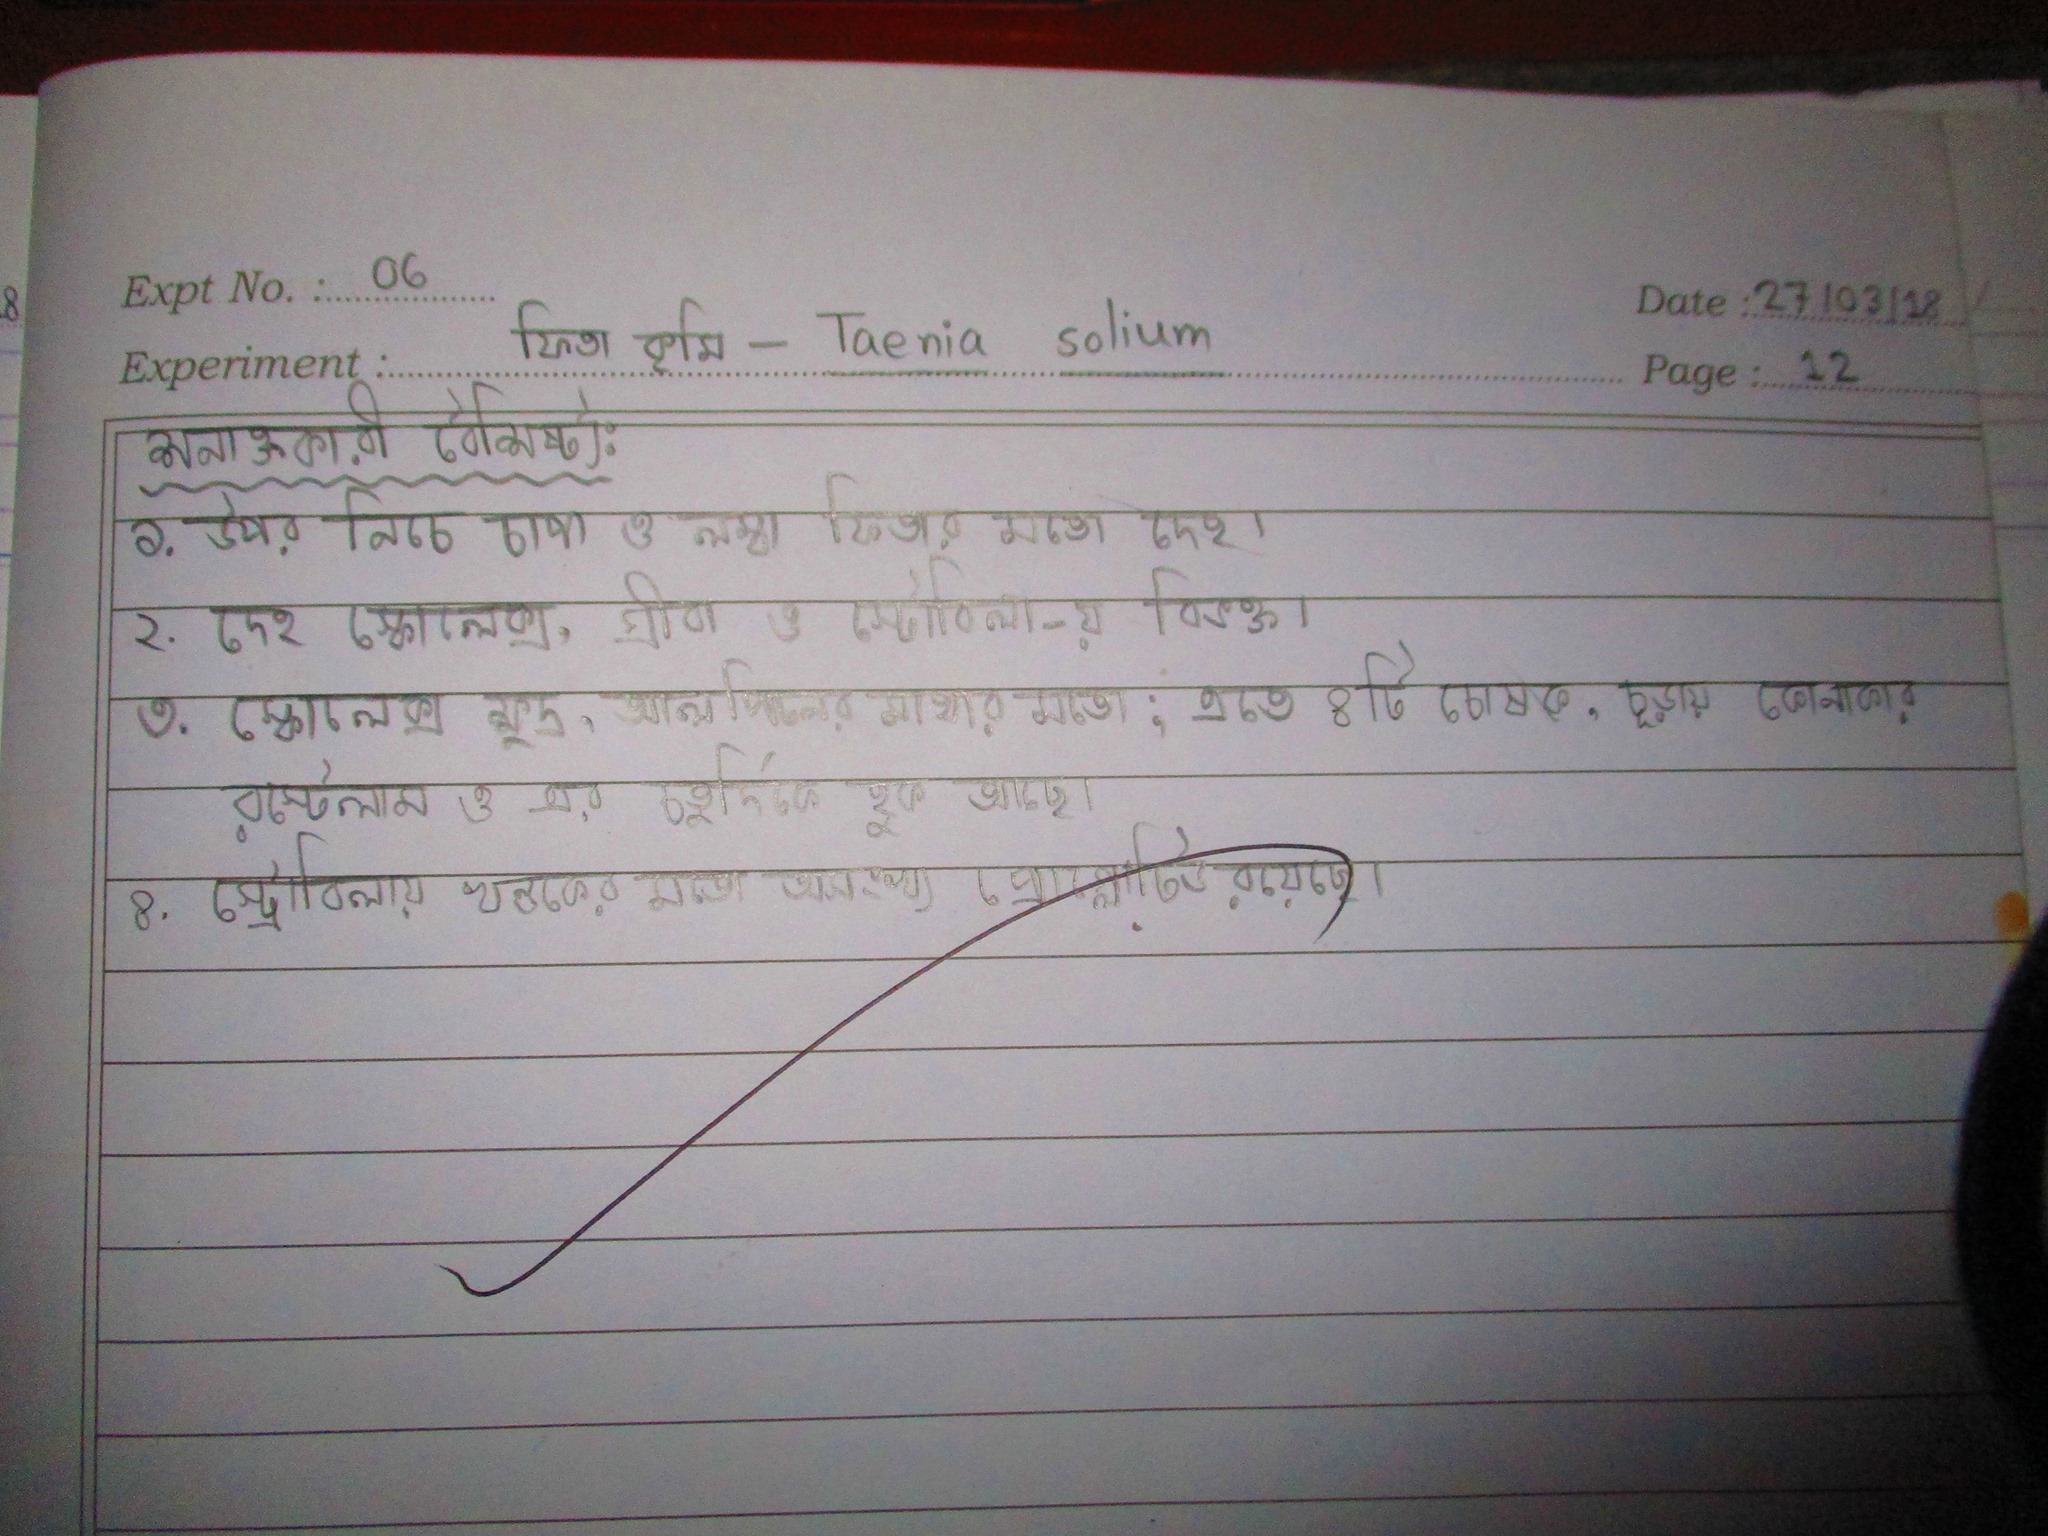 Expt No. : 06
Date : 27/03/18
Experiment : ফিতা কৃমি – Taenia solium
Page : 12
শনাক্তকারী বৈশিষ্ট্য:
১. উপর নিচে চাপা ও লম্বা ফিতার মতো দেহ।
২. দেহ স্কোলেক্স, গ্রীবা ও স্ট্রোবিলা-য় বিভক্ত।
৩. স্কোলেক্স ক্ষুদ্র, আলপিনের মাথার মতো; এতে ৪টি চোষক, চূড়ায় কোনাকার
রস্টেলাম ও এর চতুর্দিকে হুক আছে।
৪. স্ট্রোবিলায় খন্ডকের মতো অসংখ্য প্রোগ্লোটিড রয়েছে।